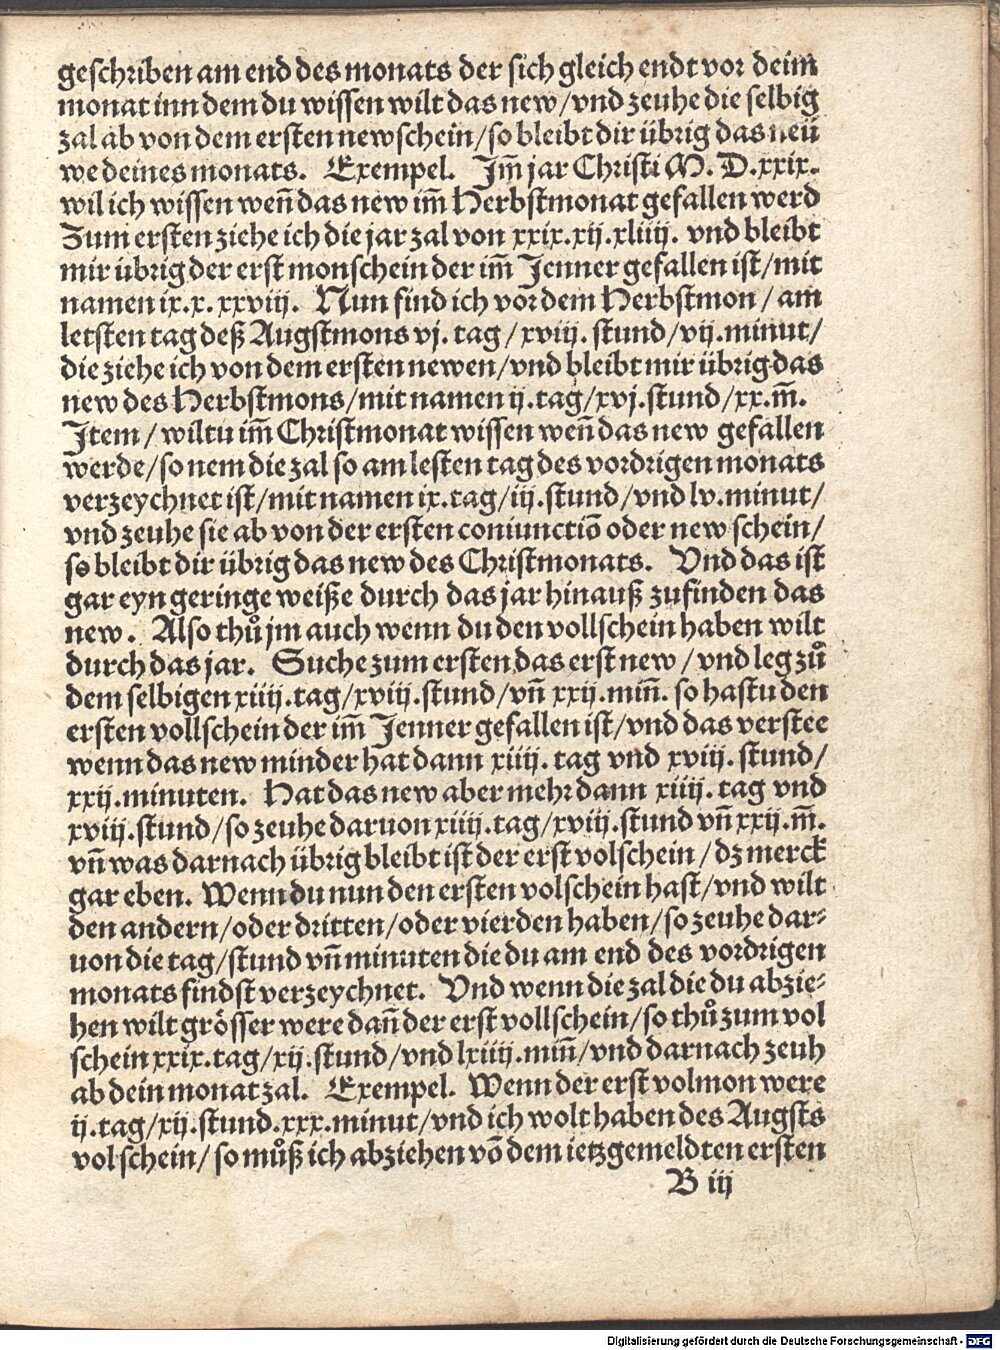 geschriben am end des monats der sich gleich endt vor deim
monat inn dem du wissen wilt das new/vnd zeuhe die selbig
zal ab von dem ersten newschein/so bleibt dir übrig das neü
we deines monats. Exempel. Jm̃ jar Christi M. D.xxix.
wil ich wissen weñ das new im̃ Herbstmonat gefallen werd
Zum ersten ziehe ich die jar zal von xxix.xij.xliiij. vnd bleibt
mir übrig der erst monschein der im̃ Jenner gefallen ist/mit
namen ix.x. xxviij. Nun find ich vor dem Herbstmon/am
letsten tag deß Augstmons vj. tag/xviij. stund/vij.minut/
die ziehe ich von dem ersten newen/vnd bleibt mir übrig das
new des Herbstmons/mit namen ij.tag/xvj.stund/xx.m̃.
Jtem/wiltu im̃ Christmonat wissen weñ das new gefallen
werde/so nem die zal so am lesten tag des vordrigen monats
verzeychnet ist/mit namen ix.tag/iij.stund/vnd lv.minut/
vnd zeuhe sie ab von der ersten coniunctiõ oder new schein/
so bleibt dir übrig das new des Christmonats. Vnd das ist
gar eyn geringe weiße durch das jar hinauß zufinden das
new. Also thůjm auch wenn du den vollschein haben wilt
durch das jar. Suche zum ersten das erst new/vnd leg zů
dem selbigen xiiij.tag/xviij.stund/vñ xxij.miñ. so hastu den
ersten vollschein der im̃ Jenner gefallen ist/vnd das verstee
wenn das new minder hat dann xiiij. tag vnd xviij. stund/
xxij.minuten. Hat das new aber mehr dann xiiij. tag vnd
xviij.stund/so zeuhe daruon xiiij.tag/xviij.stund vñ xxij.m̃.
vñ was darnach übrig bleibt ist der erst volschein/dz merck
gar eben. Wenn du nun den ersten volschein hast/vnd wilt
den andern/oder dritten/oder vierden haben/so zeuhe dar⸗
uon die tag/stund vñ minuten die du am end des vordrigen
monats findst verzeychnet. Vnd wenn die zal die du abzie⸗
hen wilt grösser were dañ der erst vollschein/so thů zum vol
schein xxix.tag/xij.stund/vnd lxiiij.miñ/vnd darnach zeuh
ab dein monat zal. Exempel. Wenn der erst volmon were
ij.tag/xij.stund.xxx.minut/vnd ich wolt haben des Augsts
vol schein/so můß ich abziehen võ dem ietzgemeldten ersten
B iij
Digitalisierung gefördert durch die Deutsche Forschungsgemeinschaft - DFG